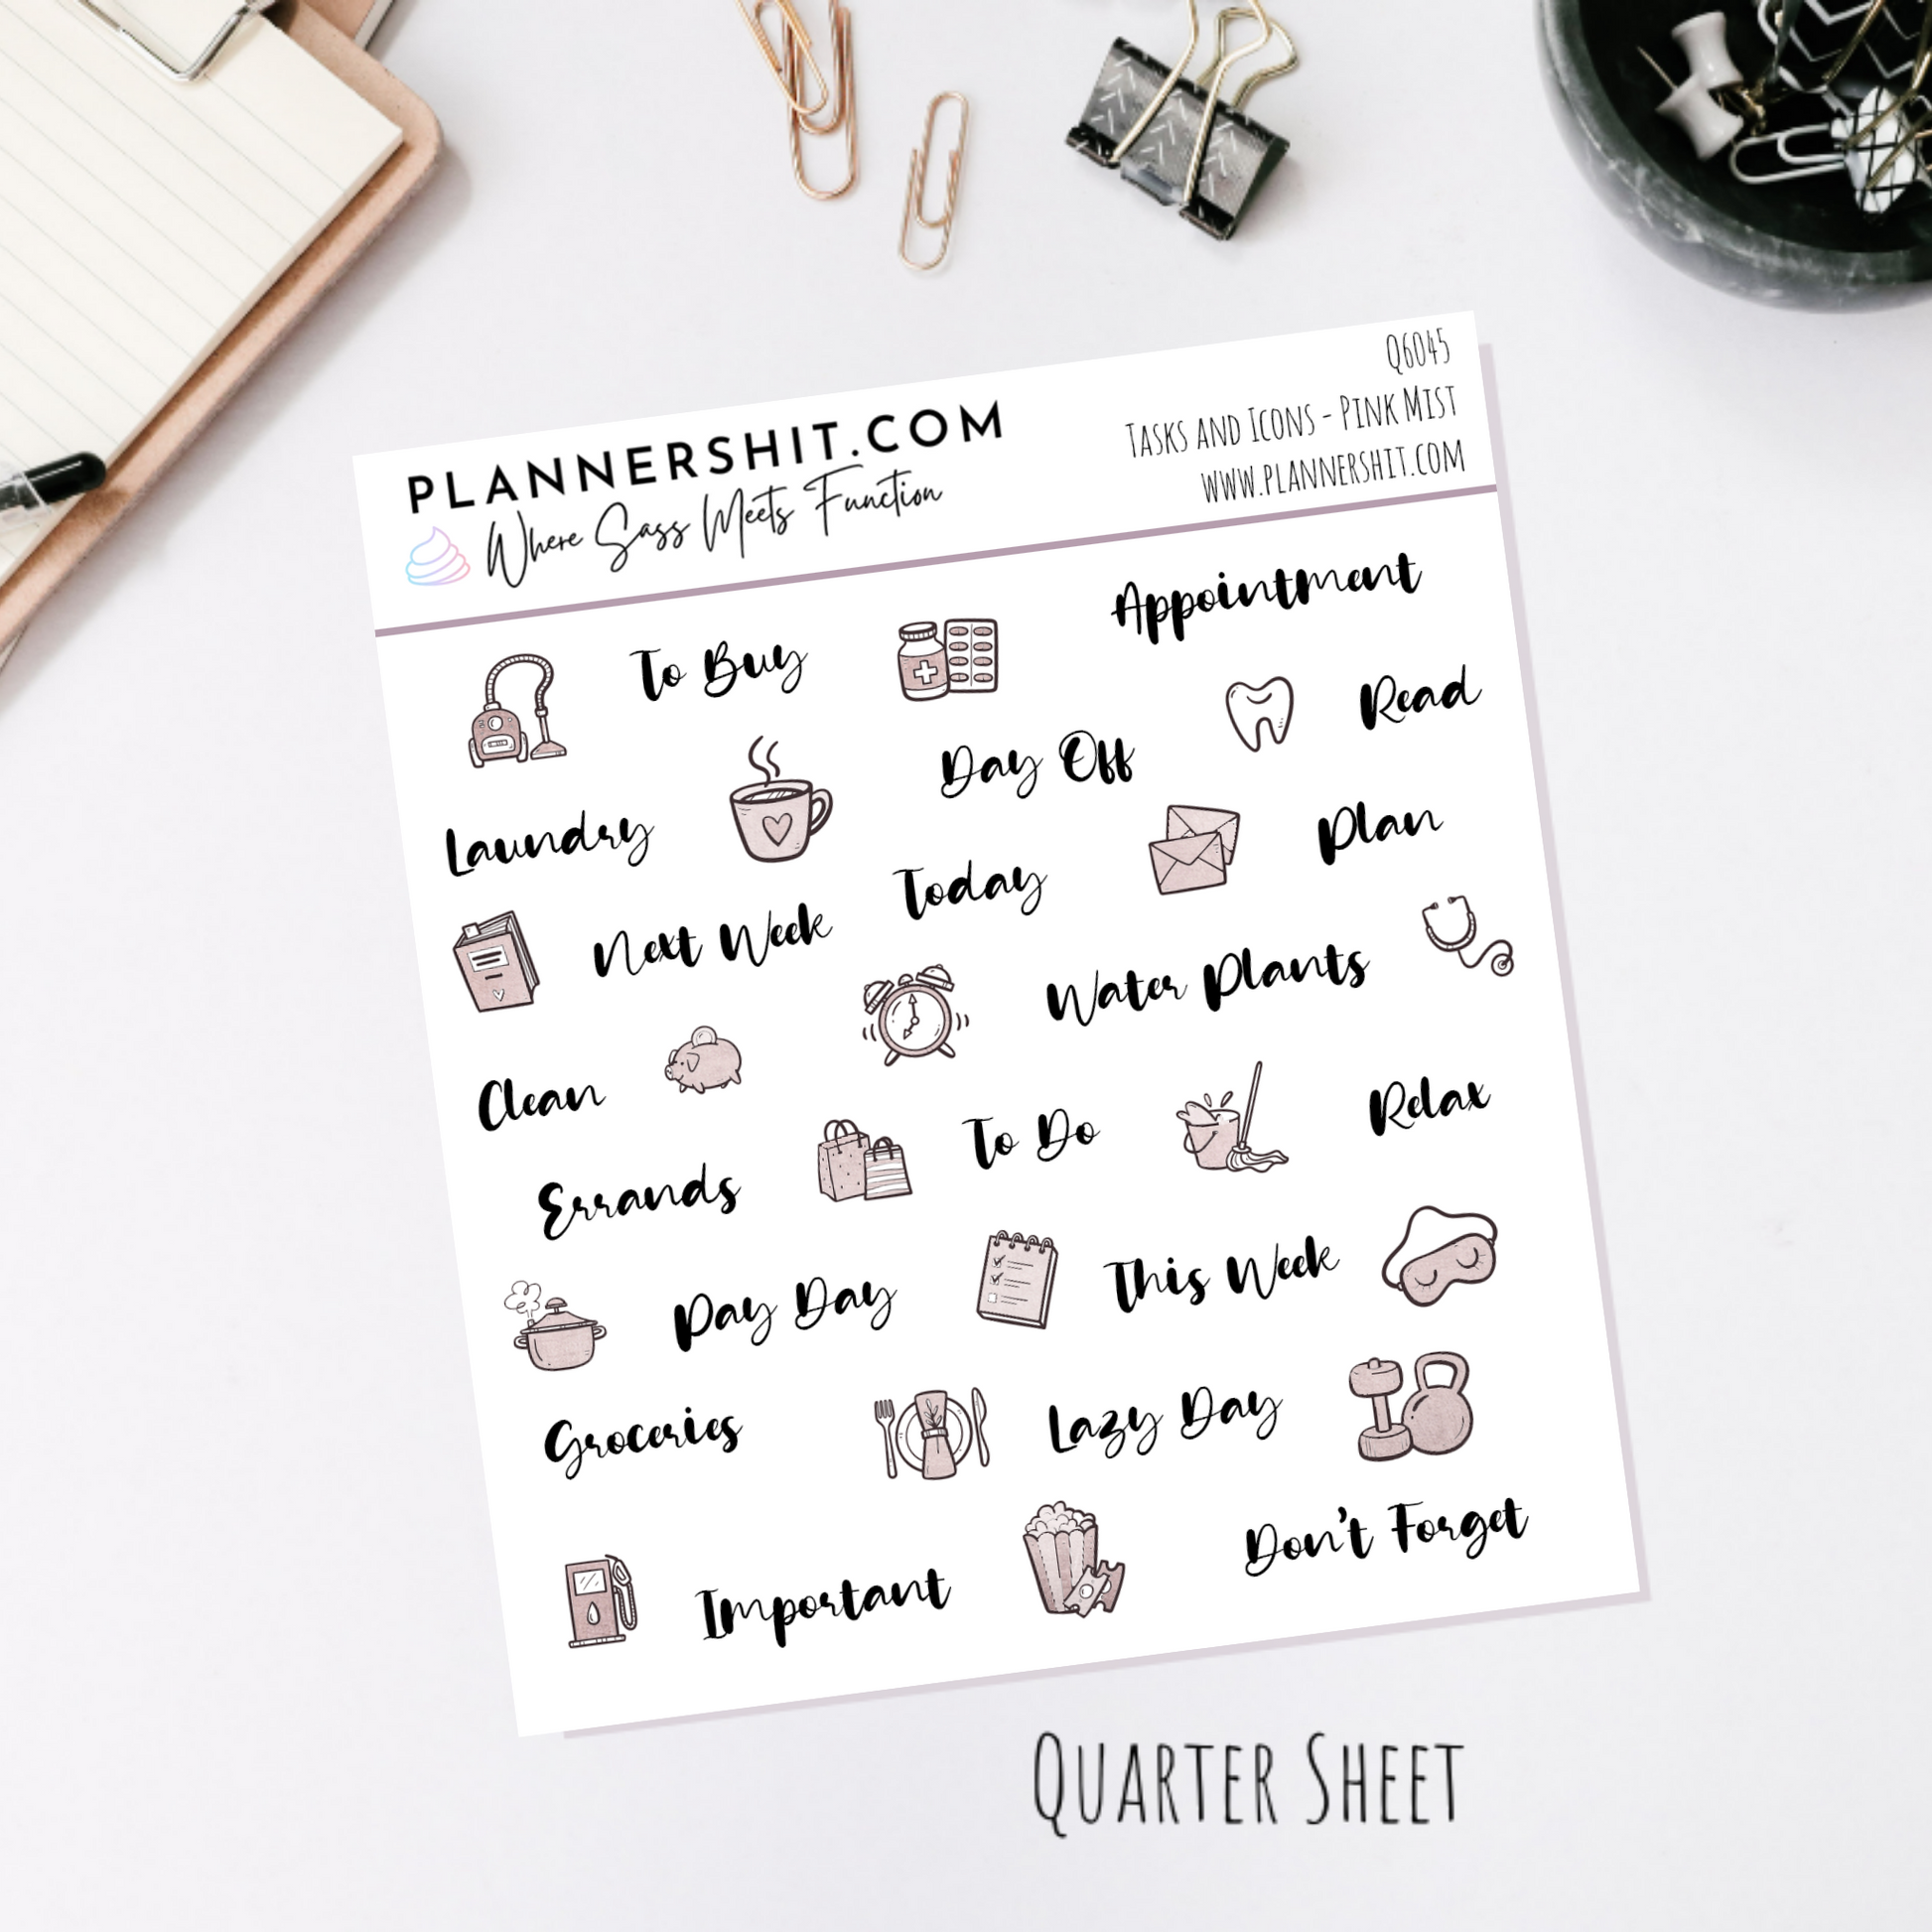 PLANNERSHIT.COM
Where Sass Meets Function
Q6045
Tasks and Icons - Pink Mist
www.plannershit.com
To Buy
Appointment
Read
Day Off
Laundry
Plan
Today
Next Week
Water Plants
Clean
To Do
Relax
Errands
This Week
Pay Day
Groceries
Lazy Day
Don't Forget
Important
Quarter Sheet